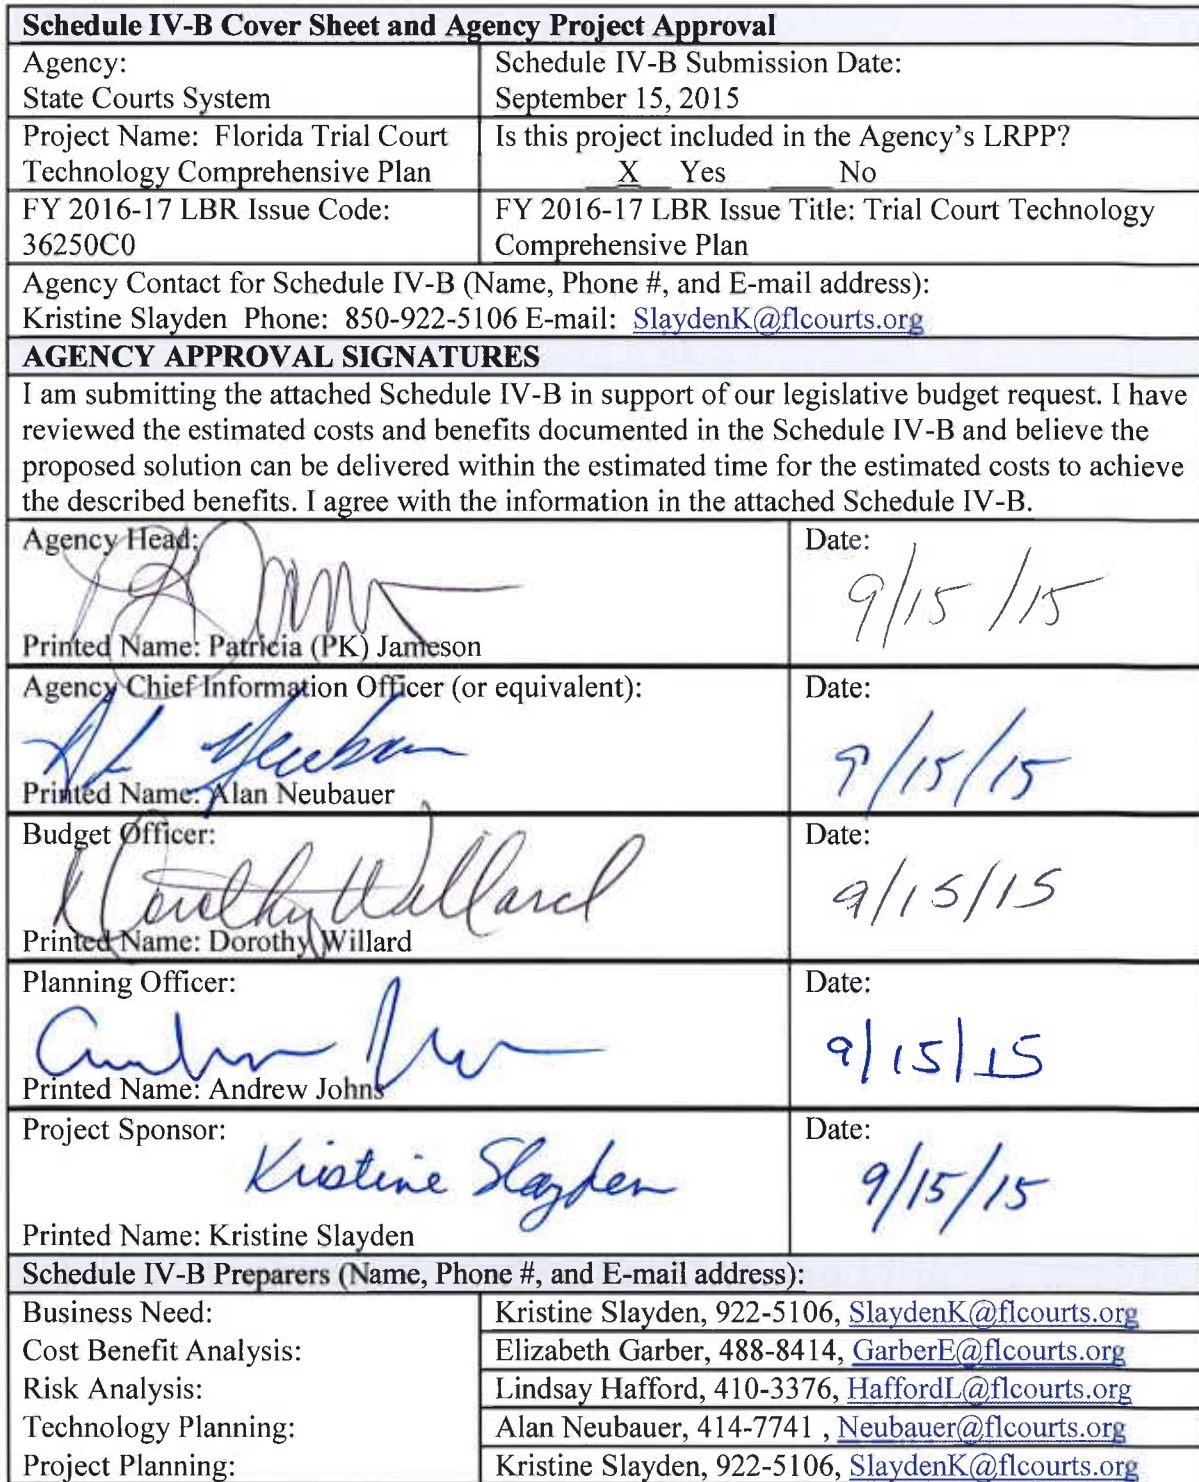 Schedule IV-B Cover Sheet and Agency Project Approval
Agency:
State Courts System
Schedule IV-B Submission Date:
September 15, 2015
Project Name: Florida Trial Court
Technology Comprehensive Plan
Is this project included in the Agency's LRPP?
X Yes ____ No
FY 2016-17 LBR Issue Code:
36250C0
FY 2016-17 LBR Issue Title: Trial Court Technology
Comprehensive Plan
Agency Contact for Schedule IV-B (Name, Phone #, and E-mail address):
Kristine Slayden Phone: 850-922-5106 E-mail: SlaydenK@flcourts.org
AGENCY APPROVAL SIGNATURES
I am submitting the attached Schedule IV-B in support of our legislative budget request. I have
reviewed the estimated costs and benefits documented in the Schedule IV-B and believe the
proposed solution can be delivered within the estimated time for the estimated costs to achieve
the described benefits. I agree with the information in the attached Schedule IV-B.
Agency Head:
Printed Name: Patricia (PK) Jameson
Date:
9/15/15
Agency Chief Information Officer (or equivalent):
Printed Name: Alan Neubauer
Date:
9/15/15
Budget Officer:
Dorothy Willard
Printed Name: Dorothy Willard
Date:
9/15/15
Planning Officer:
Printed Name: Andrew Johns
Date:
9/15/15
Project Sponsor:
Kristine Slayden
Printed Name: Kristine Slayden
Date:
9/15/15
Schedule IV-B Preparers (Name, Phone #, and E-mail address):
Business Need:
Kristine Slayden, 922-5106, SlaydenK@flcourts.org
Cost Benefit Analysis:
Elizabeth Garber, 488-8414, GarberE@flcourts.org
Risk Analysis:
Lindsay Hafford, 410-3376, HaffordL@flcourts.org
Technology Planning:
Alan Neubauer, 414-7741 , Neubauer@flcourts.org
Project Planning:
Kristine Slayden, 922-5106, SlaydenK@flcourts.org